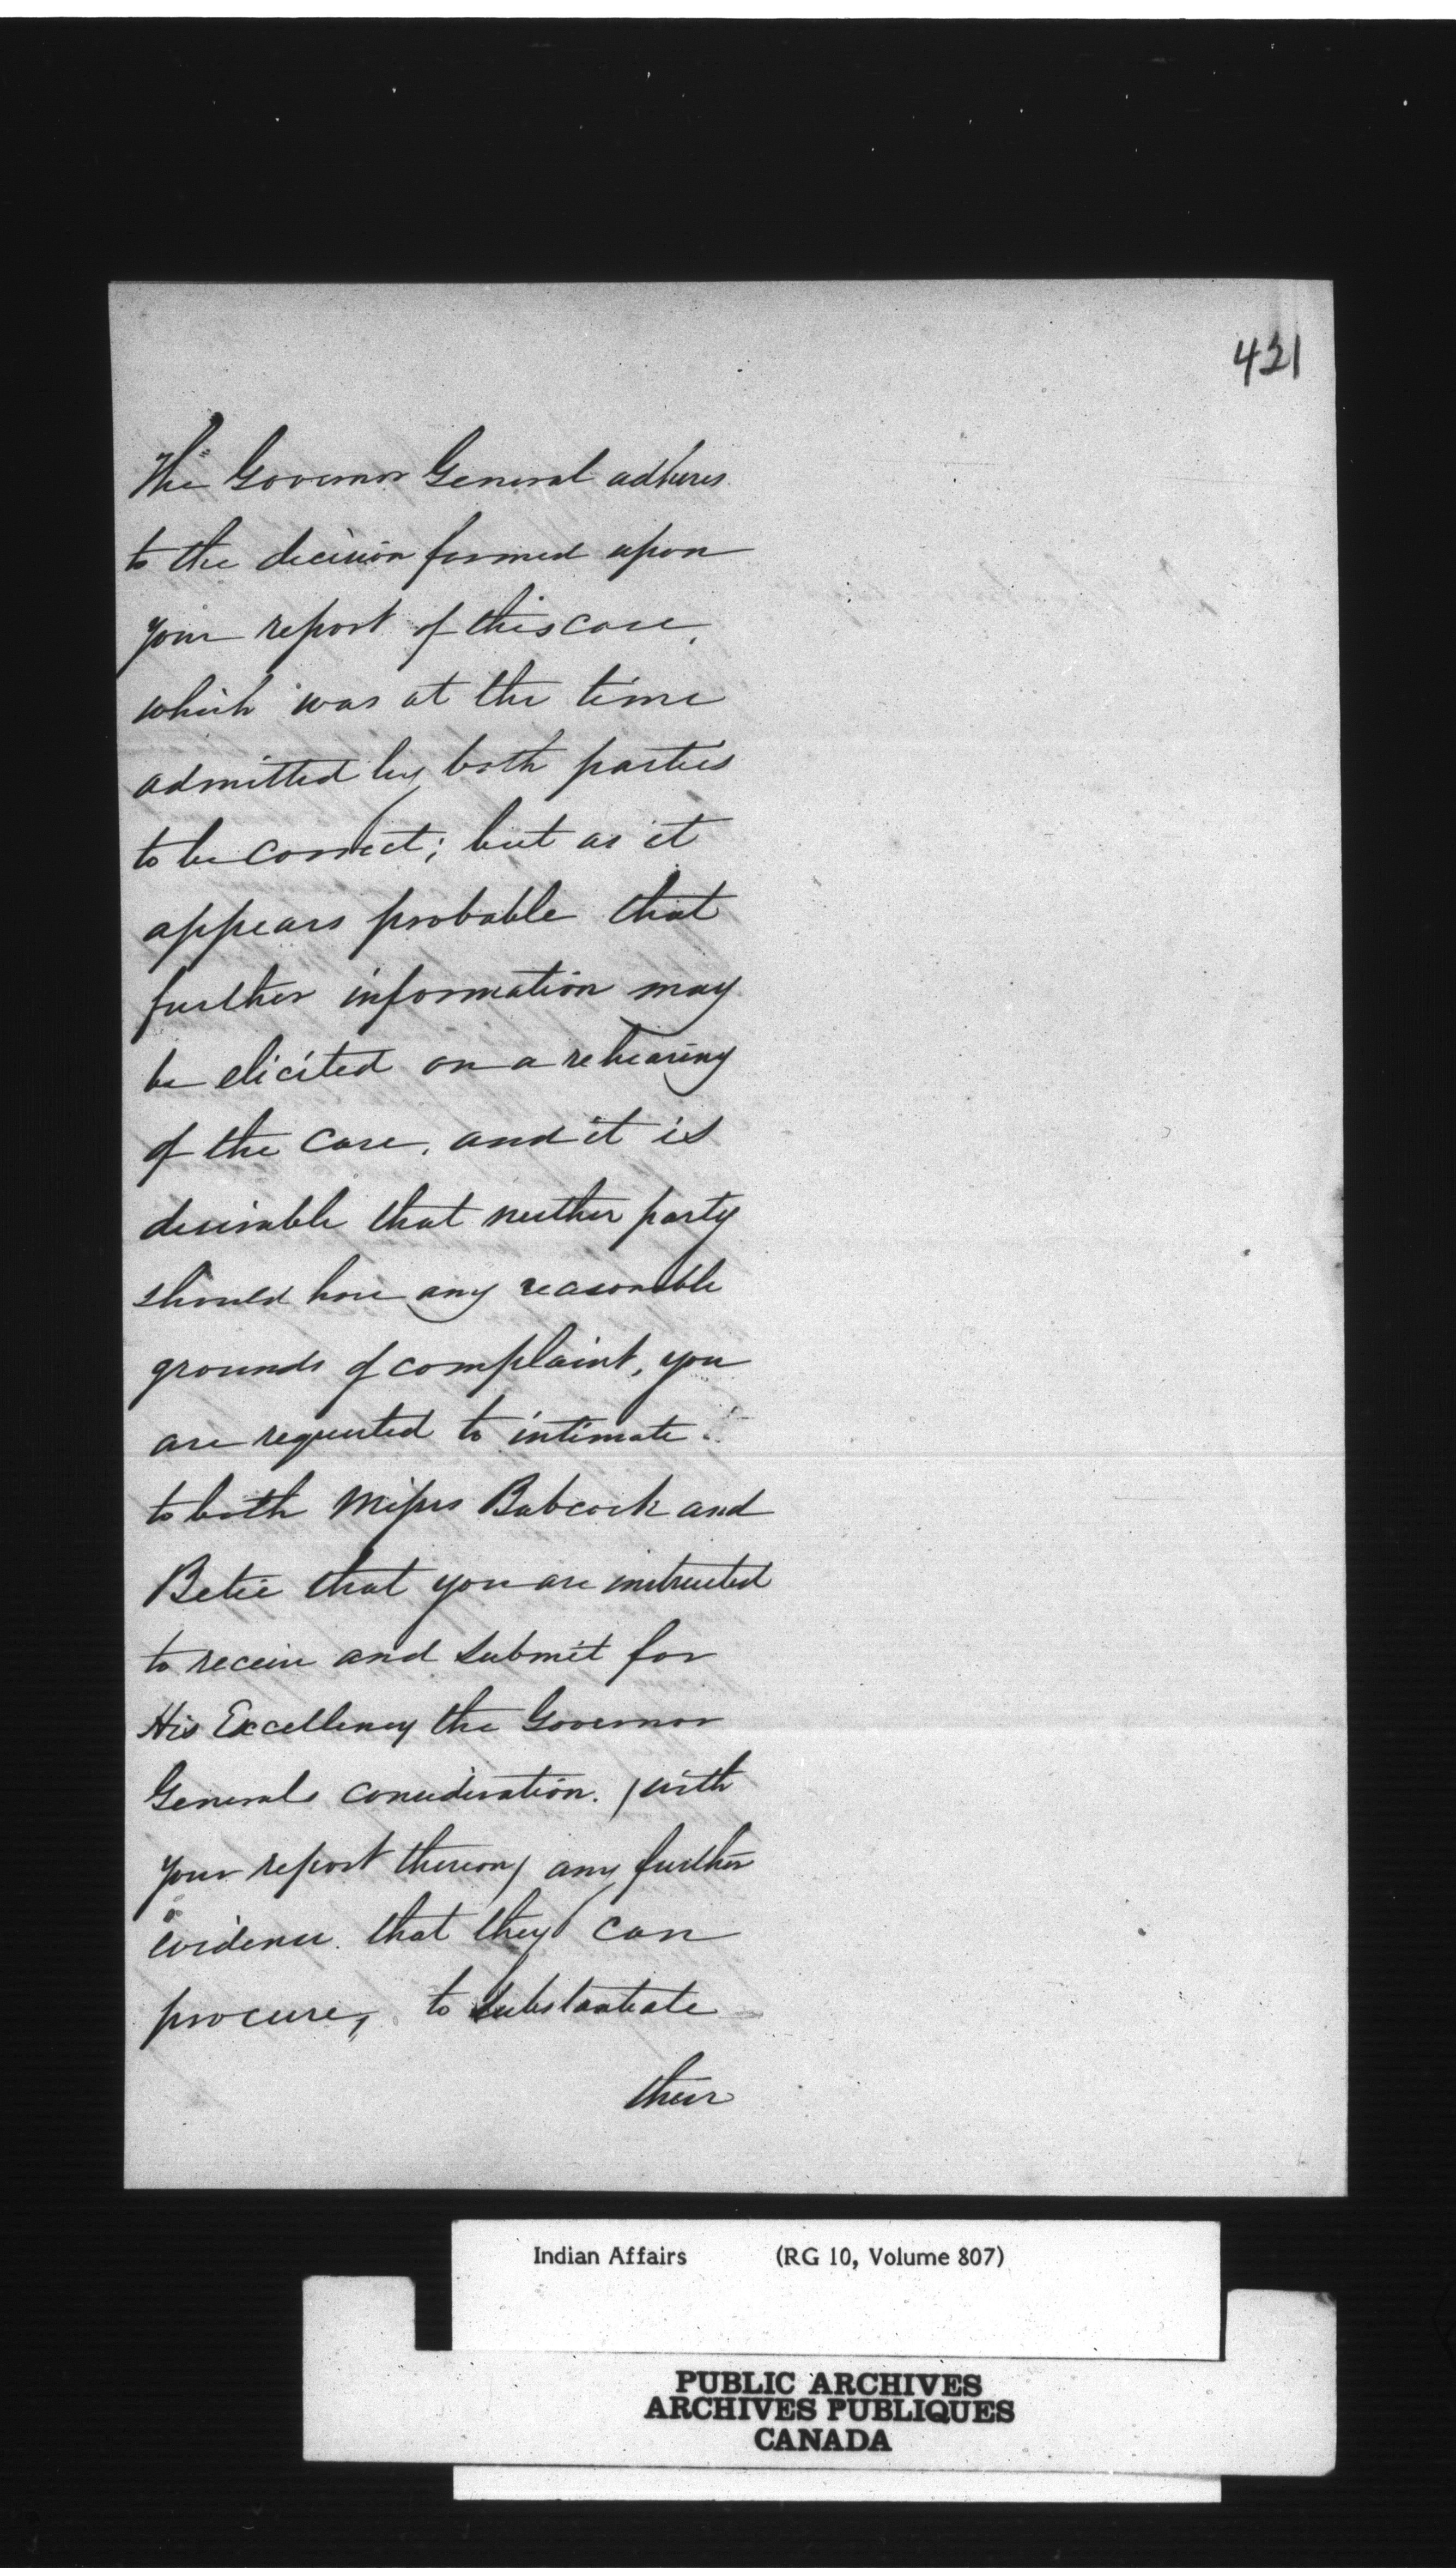 421
The Governor General adheres
to the decision formed upon
your report of this case,
which was at the time
admitted by both parties
to be correct; but as it
appears probable that
further information may
be elicited on a rehearing
of the case, and it is
desirable that neither party
should have any reasonable
grounds of complaint, you
are requested to intimate
to both Messrs Babcock and
Betie that you are instructed
to receive and submit for
His Excellency the Governor
Generals consideration. (with
your report thereon) any further
evidence that they can
procure, to substantiate
their
Indian Affairs (RG 10, Volume 807)
PUBLIC ARCHIVES
ARCHIVES PUBLIQUES
CANADA